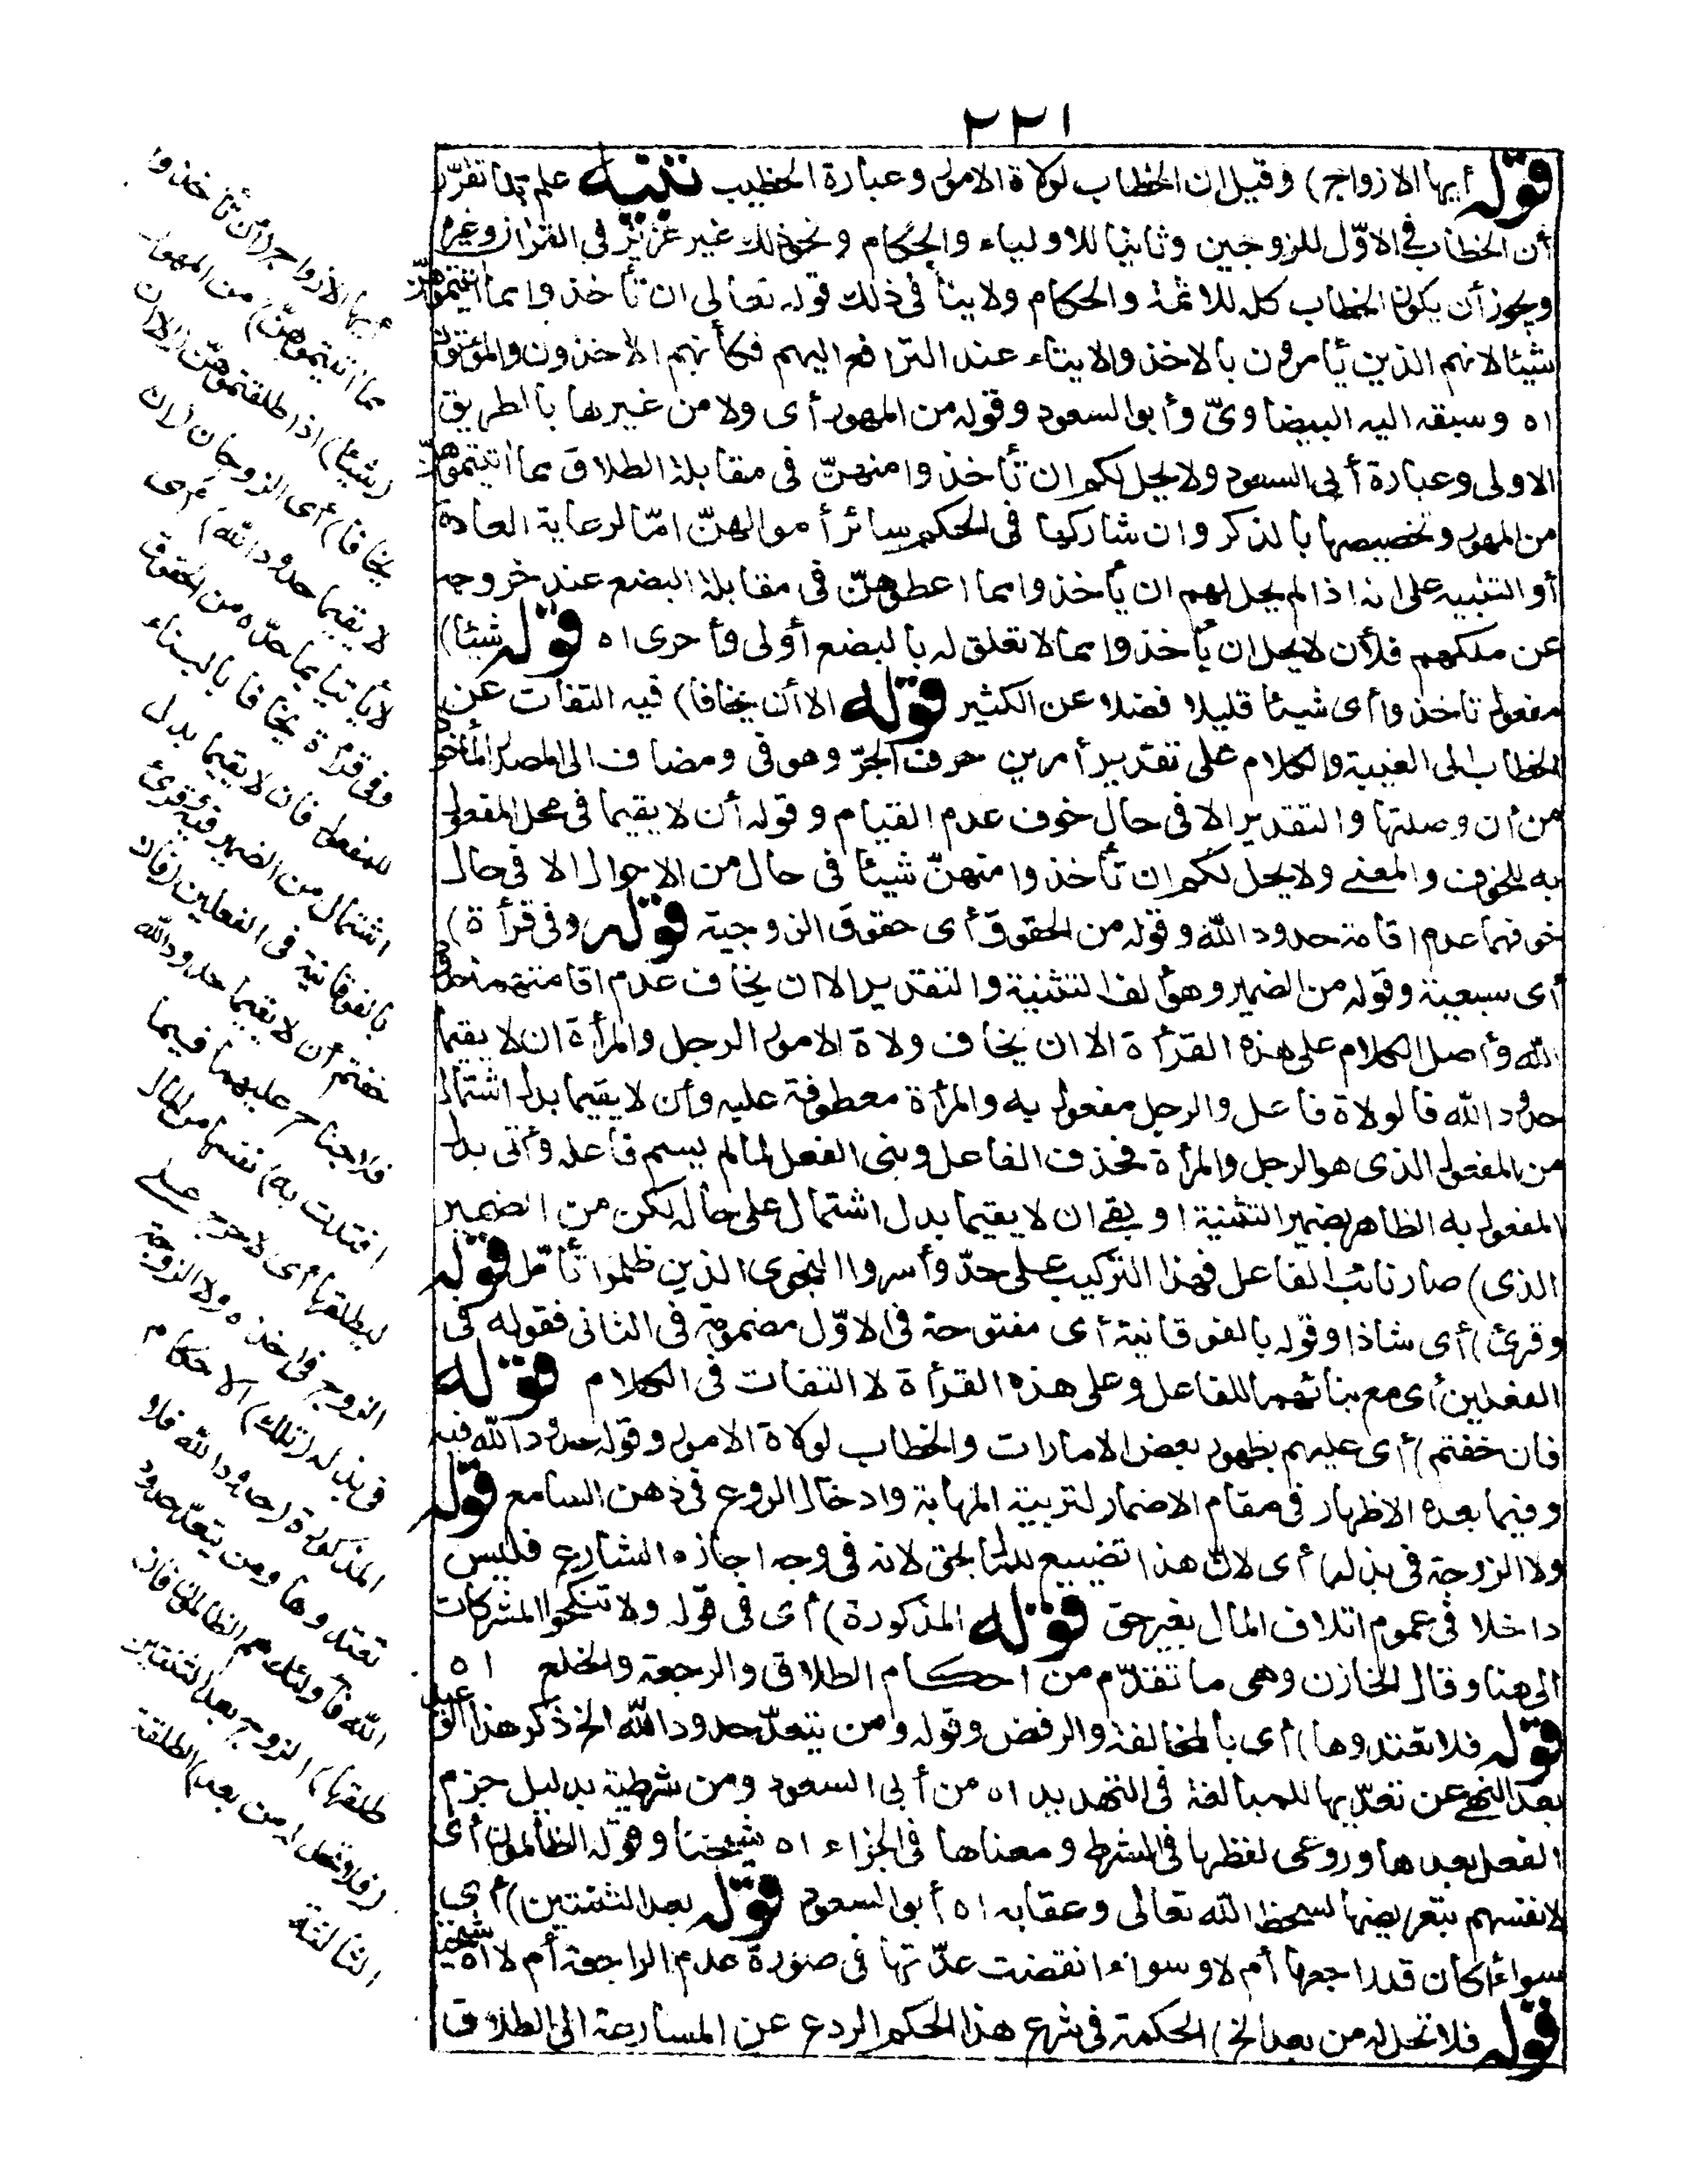 ٢٢١
قوله أيها الازواج) وقيل ان الخطاب لولاة الامور وعبارة الخطيب تنبيه علم مما تقرّر
أن الخطاب في الاوّل للزوجين وثانيا للاولياء والحكام ونحو ذلك غير عزيز في القرآن وغيره
ويجوز أن يكون الخطاب كله للائمة والحكام ولا ينافى ذلك قوله تعالى ان تأخذوا مما اتيتموهنّ
شيئا لانهم الذين يأمرون بالاخذ والايتاء عند الترافع اليهم فكأنهم الآخذون والمؤتون
اه وسبقه اليه البيضاوىّ وأبو السعود وقوله من المهور أى ولا من غيرها بالطريق
الاولى وعبارة أبى السعود ولا يحل لكم ان تأخذوا منهنّ فى مقابلة الطلاق مما اتيتموهنّ
من المهور وتخصيصها بالذكر وان شاركها فى الحكم سائر أموالهنّ امّا لرعاية العادة
أو التنبيه على انه اذا لم يحل لهم ان يأخذوا مما اعطوهنّ فى مقابلة البضع عند خروجه
عن ملكهم فلأن لا يحل ان يأخذوا مما لا تعلق له بالبضع أولى وأحرى اه قوله شيئا)
مفعول تاخذوا أى شيئا قليلا فضلا عن الكثير قوله الا أن يخافا) فيه التفات عن
الخطاب الى الغيبة والكلام على تقدير أمرين حرف الجرّ وهو فى ومضاف الى المصدر المأخوذ
من أن وصلتها والتقدير الا فى حال خوف عدم القيام وقوله أن لا يقيما فى محل المفعول
به للخوف والمعنى ولا يحل لكم ان تأخذوا منهنّ شيئا فى حال من الاحوال الا فى حال
خوفهما عدم اقامة حدود الله وقوله من الحقوق أى حقوق الزوجية قوله وفى قرأة)
أى سبعية وقوله من الضمير وهو ألف التثنية والتقدير الا ان يخاف عدم اقامتهما حدود
الله وأصل الكلام على هذه القرأة الا ان يخاف ولاة الامور الرجل والمرأة ان لا يقيما
حدود الله فالولاة فاعل والرجل مفعول به والمرأة معطوفة عليه وأن لا يقيما بدل اشتمال
من المفعول الذى هو الرجل والمرأة فحذف الفاعل وبنى الفعل لما لم يسم فاعله وأتى بدل
المفعول به الظاهر بضمير التثنية او بقى ان لا يقيما بدل اشتمال على حاله لكن من الضمير
الذى) صار نائب الفاعل فهذا التركيب على حدّ وأسروا النجوى الذين ظلموا تأمّل قوله
وقرئ) أى شاذا وقوله بالفوقانية أى مفتوحة فى الاوّل مضمومة فى الثانى فقوله فى
الفعلين أى مع بنائهما للفاعل وعلى هذه القرأة لا التفات فى الكلام قوله
فان خفتم) أى عليهم بظهور بعض الامارات والخطاب لولاة الامور وقوله حدود الله فيه
وفيما بعده الاظهار فى مقام الاضمار لتربية المهابة وادخال الروع فى ذهن السامع قوله
ولا الزوجة فى بذله) أى لان هذا تضييع للمال بحق لانه فى وجه اجازه الشارع فليس
داخلا فى عموم اتلاف المال بغير حق قوله المذكورة) أى فى قوله ولا تنكحوا المشركات
الى هنا وقال الخازن وهى ما تقدّم من احكام الطلاق والرجعة والخلع اه
قوله فلا تعتدوها) أى بالمخالفة والرفض وقوله ومن يتعدّ حدود الله الخ ذكر هذا الوعيد
بعد النهى عن تعدّيها للمبالغة فى التهديد اه من أبى السعود ومن شرطية بدليل جزم
الفعل بعدها وروعى لفظها فى الشرط ومعناها فى الجزاء اه شيخنا وقوله الظالمون أى
لانفسهم بتعريضها لسخط الله تعالى وعقابه اه أبو السعود قوله بعد الثنتين) أى
سواء أكان قد راجعها أم لا وسواء انقضت عدّتها فى صورة عدم المراجعة أم لا اه شيخنا
قوله فلا تحل له من بعد الخ) الحكمة فى شرع هذا الحكم الردع عن المسارعة الى الطلاق
أيها الازواج (أن تأخذوا
مما اتيتموهنّ) من المهور
(شيئا) اذا طلقتموهنّ (الا ان
يخافا) أى الزوجان (ان
لا يقيما حدود الله) أى
لا يأتيا بما حدّه من الحقوق
وفى قرأة يخافا بالبناء
للمفعول فان لا يقيما بدل
اشتمال من الضمير فيه وقرئ
بالفوقانية فى الفعلين (فان
خفتم أن لا يقيما حدود الله
فلا جناح عليهما فيما
افتدت به) نفسها من المال
ليطلقها أى لا حرج على
الزوج فى اخذه ولا الزوجة
فى بذله (تلك) الاحكام
المذكورة (حدود الله فلا
تعتدوها ومن يتعدّ حدود
الله فأولئك هم الظالمون فان
طلقها) الزوج بعد الثنتين
(فلا تحل له من بعد) الطلقة
الثالثة